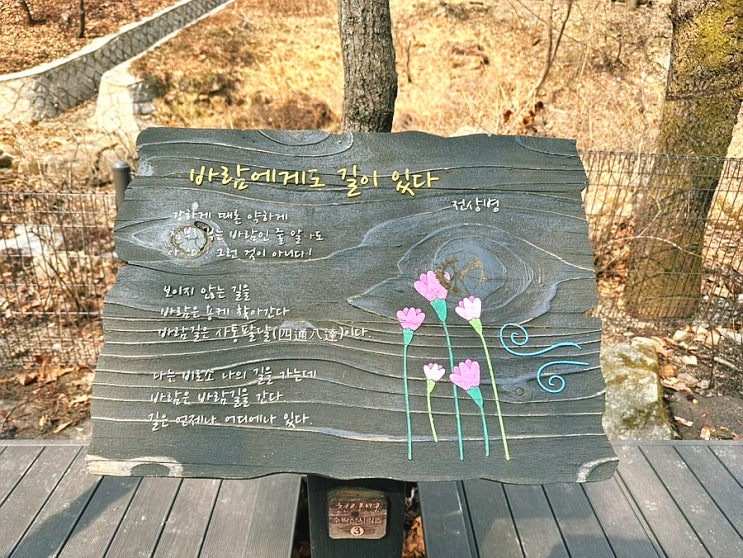 바람에게도 길이 있다
천상병
강하게 때론 약하게
부는 바람인 줄 알아도
그런 것이 아니다!
보이지 않는 길을
바람은 용케 찾아간다
바람길은 사통팔달(四通八達)이다.
나는 비로소 나의 길을 가는데
바람은 바람길을 간다.
길은 언제나 어디에나 있다.
수락산시리즈
3